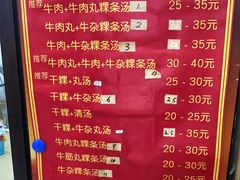 推荐 牛肉+牛肉丸粿条汤 1 25 - 35元
牛肉+牛杂粿条汤 2 - 35元
牛肉丸+牛杂粿条汤 3 - 35元
推荐 牛肉+牛肉丸+牛杂粿条汤 4 30 - 40元
推荐 干粿+丸汤 25 - 30元
干粿+牛杂汤 6 25 - 30元
干粿+清汤 20 - 25元
干粿+牛杂丸汤 25 - 35元
牛肉丸粿条汤 8 20 - 25元
牛筋丸粿条汤 20 - 25元
牛杂粿条汤 20 - 30元